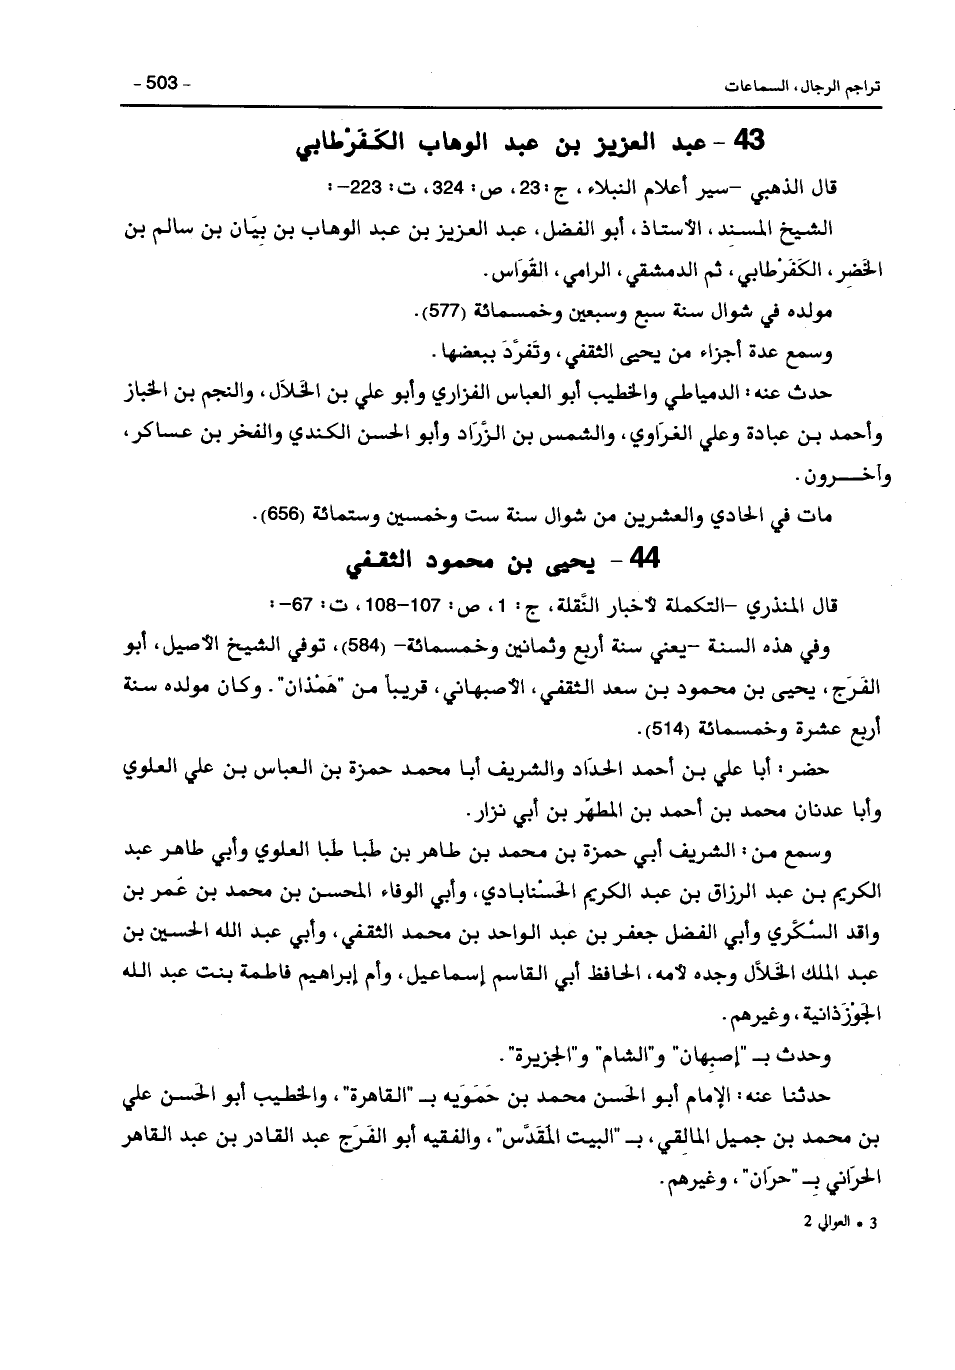 تراجم الرجال، السماعات
- 503 -
43 - عبد العزيز بن عبد الوهاب الكَفَرْطابي
قال الذهبي -سير أعلام النبلاء، ج: 23، ص: 324، ت: 223-:
الشيخ المسند، الأستاذ، أبو الفضل، عبد العزيز بن عبد الوهاب بن بيَان بن سالم بن
الخَضِر، الكَفَرْطابي، ثم الدمشقي، الرامي، القُوَاس.
مولده في شوال سنة سبع وسبعين وخمسمائة (577).
وسمع عدة أجزاء من يحيى الثقفي، وتَفرَّدَ ببعضها.
حدث عنه: الدمياطي والخطيب أبو العباس الفزاري وأبو علي بن الخَلاَل، والنجم بن الخباز
وأحمد بن عبادة وعلي الغرَاوي، والشمس بن الزَّرَاد وأبو الحسن الكندي والفخر بن عساكر،
وآخرون.
مات في الحادي والعشرين من شوال سنة ست وخمسين وستمائة (656).
44 - يحيى بن محمود الثقفي
قال المنذري -التكملة لأخبار النَّقلة، ج: 1، ص: 107-108، ت: 67-:
وفي هذه السنة -يعني سنة أربع وثمانين وخمسمائة- (584)، توفي الشيخ الأصيل، أبو
الفَرَج، يحيى بن محمود بن سعد الثقفي، الأصبهاني، قريباً من "هَمْذان". وكان مولده سنة
أربع عشرة وخمسمائة (514).
حضر: أبا علي بن أحمد الحدَاد والشريف أبا محمد حمزة بن العباس بن علي العلوي
وأبا عدنان محمد بن أحمد بن المطهَّر بن أبي نزار.
وسمع من: الشريف أبي حمزة بن محمد بن طاهر بن طَبا طَبا العلوي وأبي طاهر عبد
الكريم بن عبد الرزاق بن عبد الكريم الحَسْنابادي، وأبي الوفاء المحسن بن محمد بن عُمر بن
واقد السُّكَّري وأبي الفضل جعفر بن عبد الواحد بن محمد الثقفي، وأبي عبد الله الحسين بن
عبد الملك الخَلاَّل وجده لأمه، الحافظ أبي القاسم إسماعيل، وأم إبراهيم فاطمة بنت عبد الله
الجَوْزَذانية، وغيرهم.
وحدث بـ "إصبهان" و"الشام" و"الجزيرة".
حدثنا عنه: الإمام أبو الحَسن محمد بن حَمَوَيه بـ "القاهرة"، والخطيب أبو الحَسن علي
بن محمد بن جميل المالقي، بـ "البيت المَقدِس"، والفقيه أبو الفَرَج عبد القادر بن عبد القاهر
الحرَاني بـ "حرَان"، وغيرهم.
3 * العوالي 2